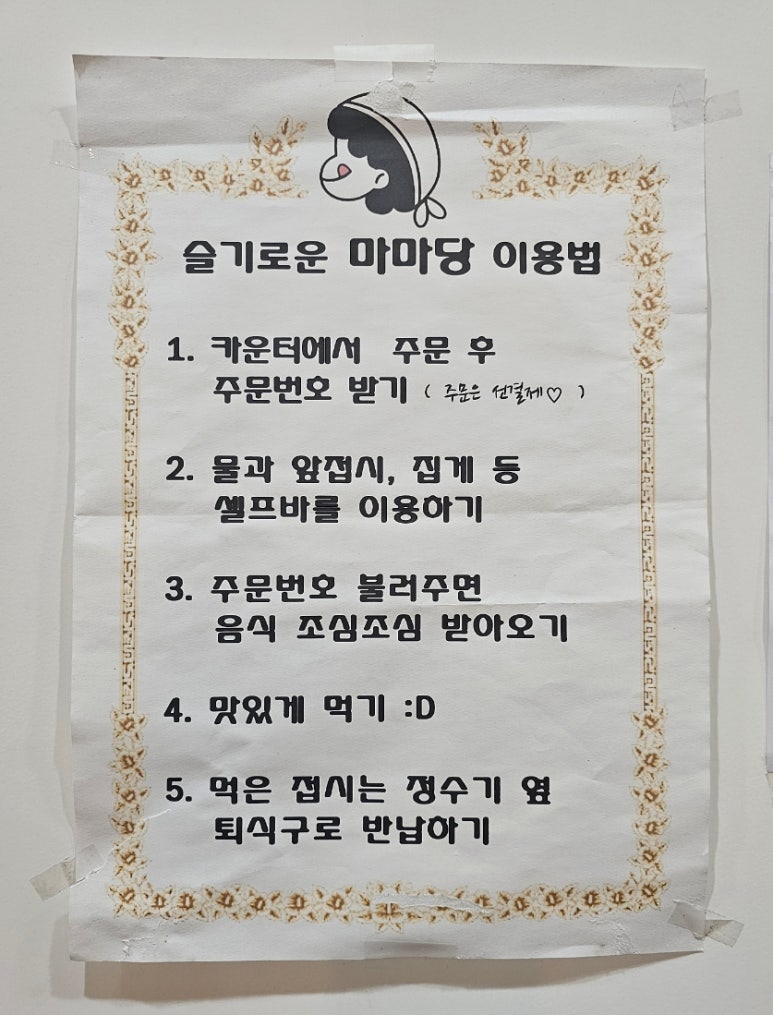 슬기로운 마마당 이용법
1. 카운터에서 주문 후
주문번호 받기 ( 주문은 선결제♡ )
2. 물과 앞접시, 집게 등
셀프바를 이용하기
3. 주문번호 불러주면
음식 조심조심 받아오기
4. 맛있게 먹기 :D
5. 먹은 접시는 정수기 옆
퇴식구로 반납하기